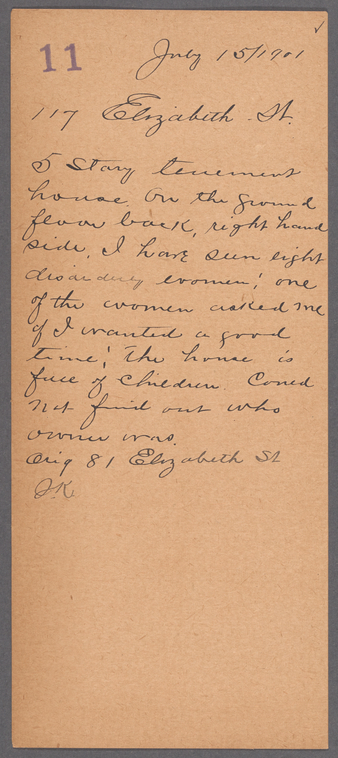 11
July 15/1901
117 Elizabeth St.
5 Story tenement
house. On the ground
floor back, right hand
side, I have seen eight
disorderly women; one
of the women asked me
if I wanted a good
time; The house is
full of children. Coued
not find out who
owner was.
Orig 81 Elizabeth St
J.K.